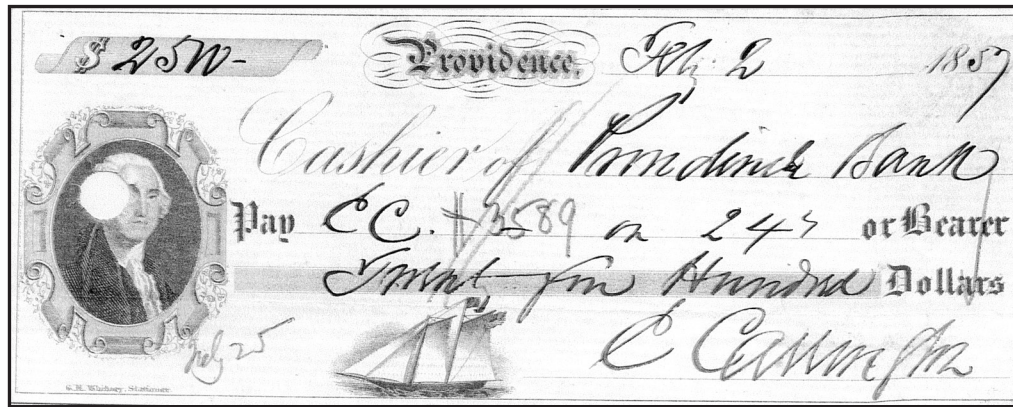 $ 2500- Providence, Feby. 2 1857
Cashier of Providence Bank
Pay CC. 3589 on or Bearer
Twenty five Hundred Dollars
Feby 25
C Carrington